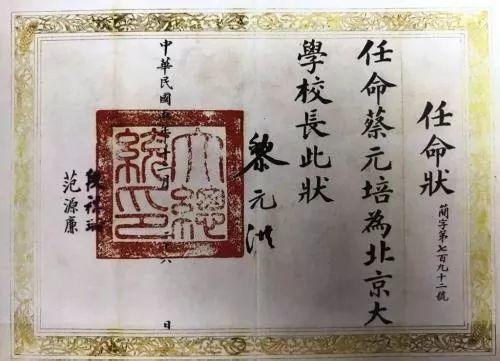 任命狀
簡字第七百九十二號
任命蔡元培為北京大
學校長此狀
黎元洪
大總統印
中華民國五年十二月六日
段祺瑞
范源廉